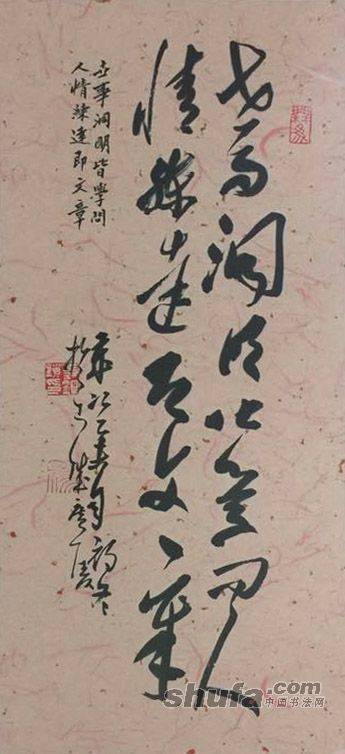 世事洞明皆學問人
情練達即文章
世事洞明皆學問
人情練達即文章
歲次乙未
shufa.com
中国书法网